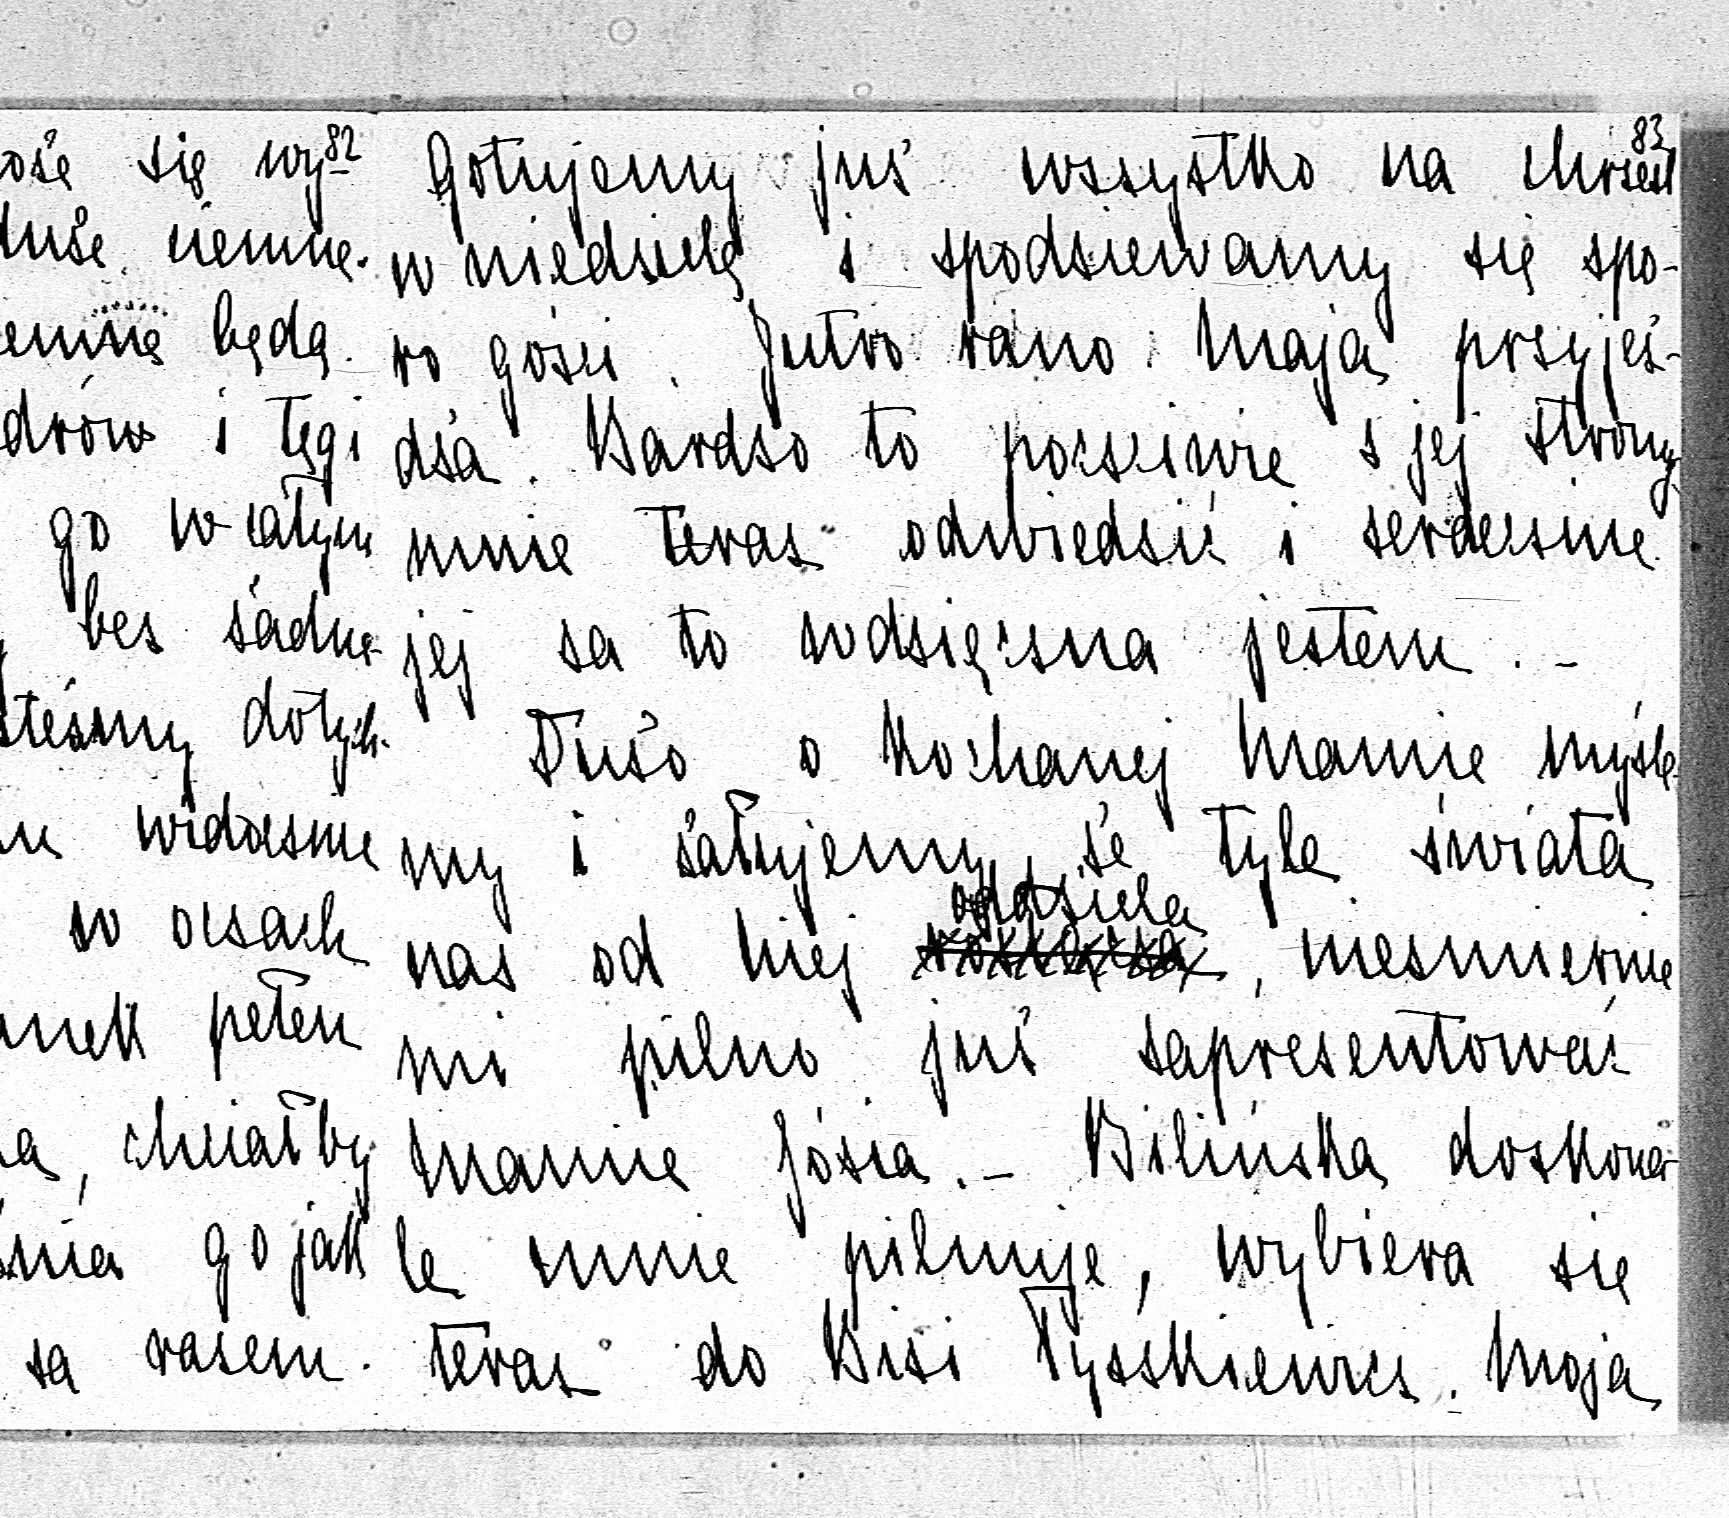 82
się wy-
ciemne.
będę.
i tęgi
go w całym
bez żadne-
dotych-
widocznie
w oczach
pełen
chciałby
go jak
za razem.
83
Gotujemy już wszystko na chrzest
w niedzielę i spodziewamy się spo-
ro gości. Jutro rano mają przyjeż-
dża. Bardzo to poczciwie z jej strony
mnie teraz odwiedzić i serdecznie
jej za to wdzięczna jestem. –
Dużo o kochanej Mamie myśle-
my i żałujemy, że tyle świata
oddziela
nas od Niej, niezmiernie
mi pilno już zaprezentować
Mamie Józia. – Bilińska doskona-
le mnie pilnuje, wybiera się
teraz do Bisi Tyszkiewicz. Moja